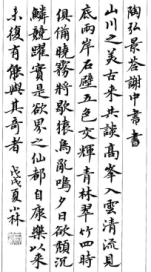 陶弘景答謝中書書
山川之美古来共談高峯入雲清流見
底兩岸石壁五色交輝青林翠竹四時
俱備曉霧將歇猿鳥亂鳴夕日欲頹沉
鱗競躍實是欲界之仙都自康樂以来
未復有能與其奇者 戊戌夏小林